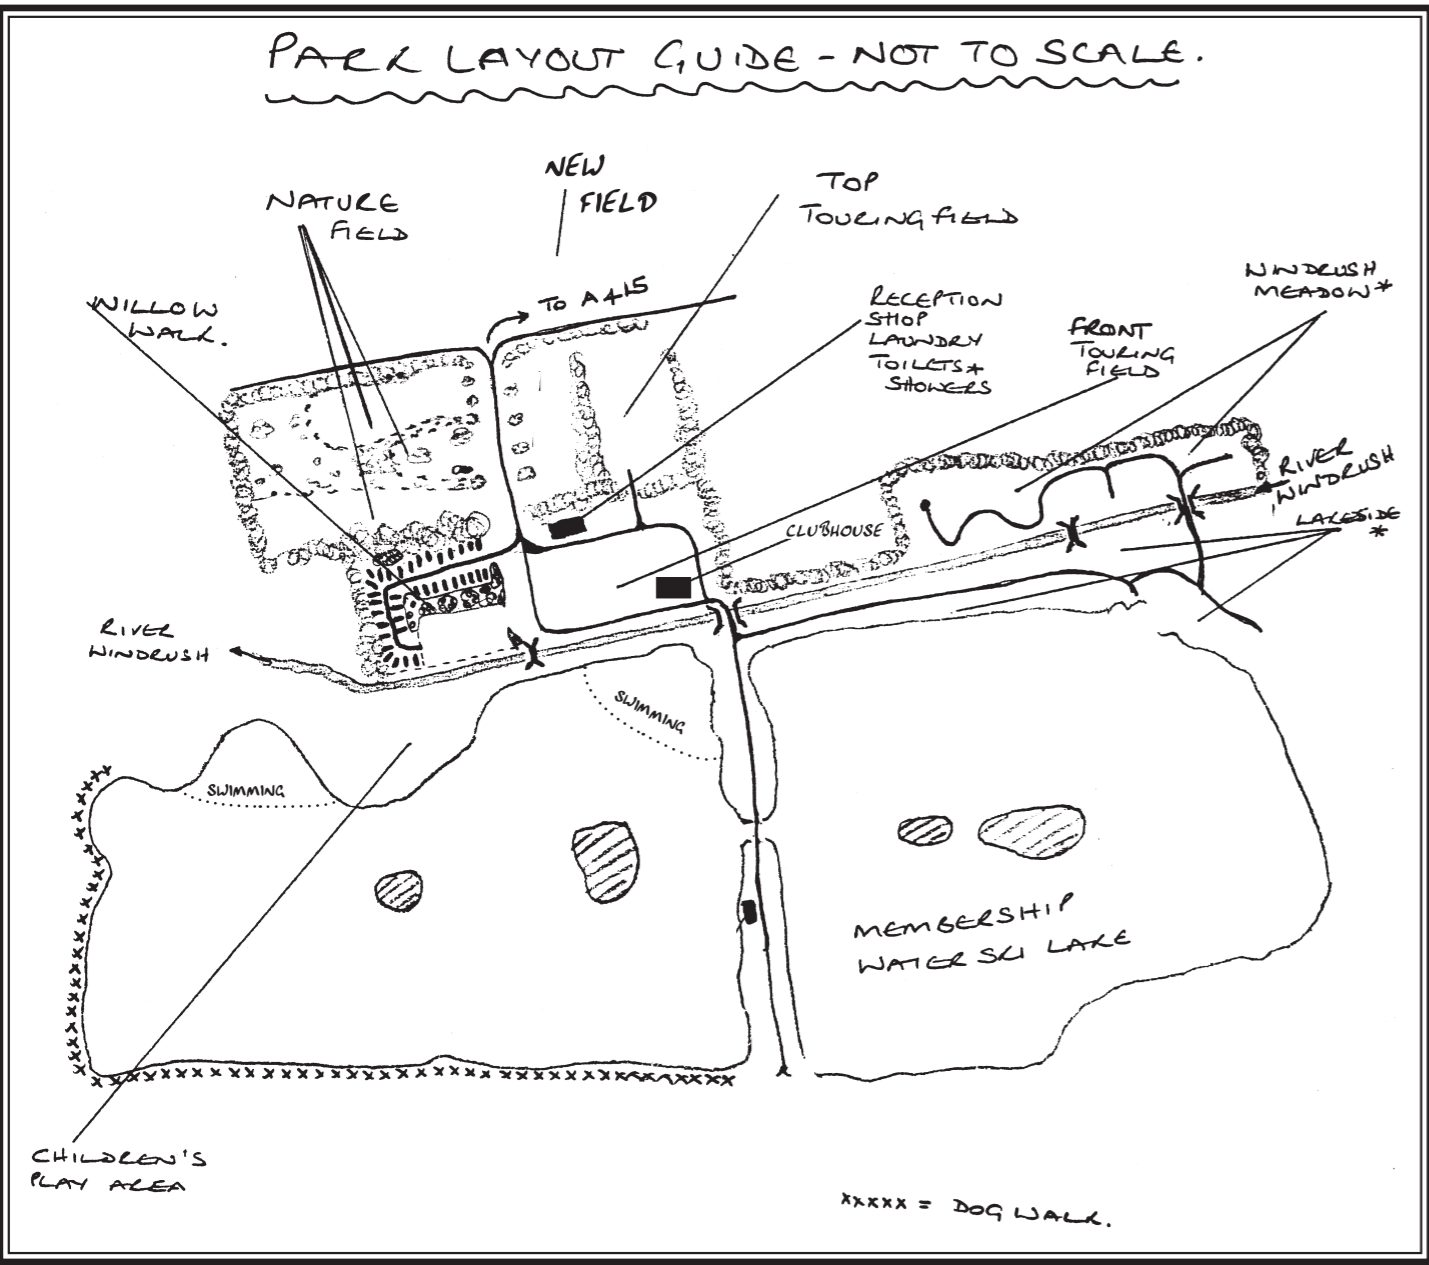 PARK LAYOUT GUIDE - NOT TO SCALE.
NEW
FIELD
TOP
TOURING FIELD
NATURE
FIELD
WILLOW
WALK.
TO A415
RECEPTION
SHOP
LAUNDRY
TOILETS +
SHOWERS
FRONT
TOURING
FIELD
WINDRUSH
MEADOW *
RIVER
WINDRUSH
LAKESIDE
*
CLUBHOUSE
RIVER
WINDRUSH
SWIMMING
SWIMMING
MEMBERSHIP
WATER SKI LAKE
CHILDREN'S
PLAY AREA
xxxxx = DOG WALK.